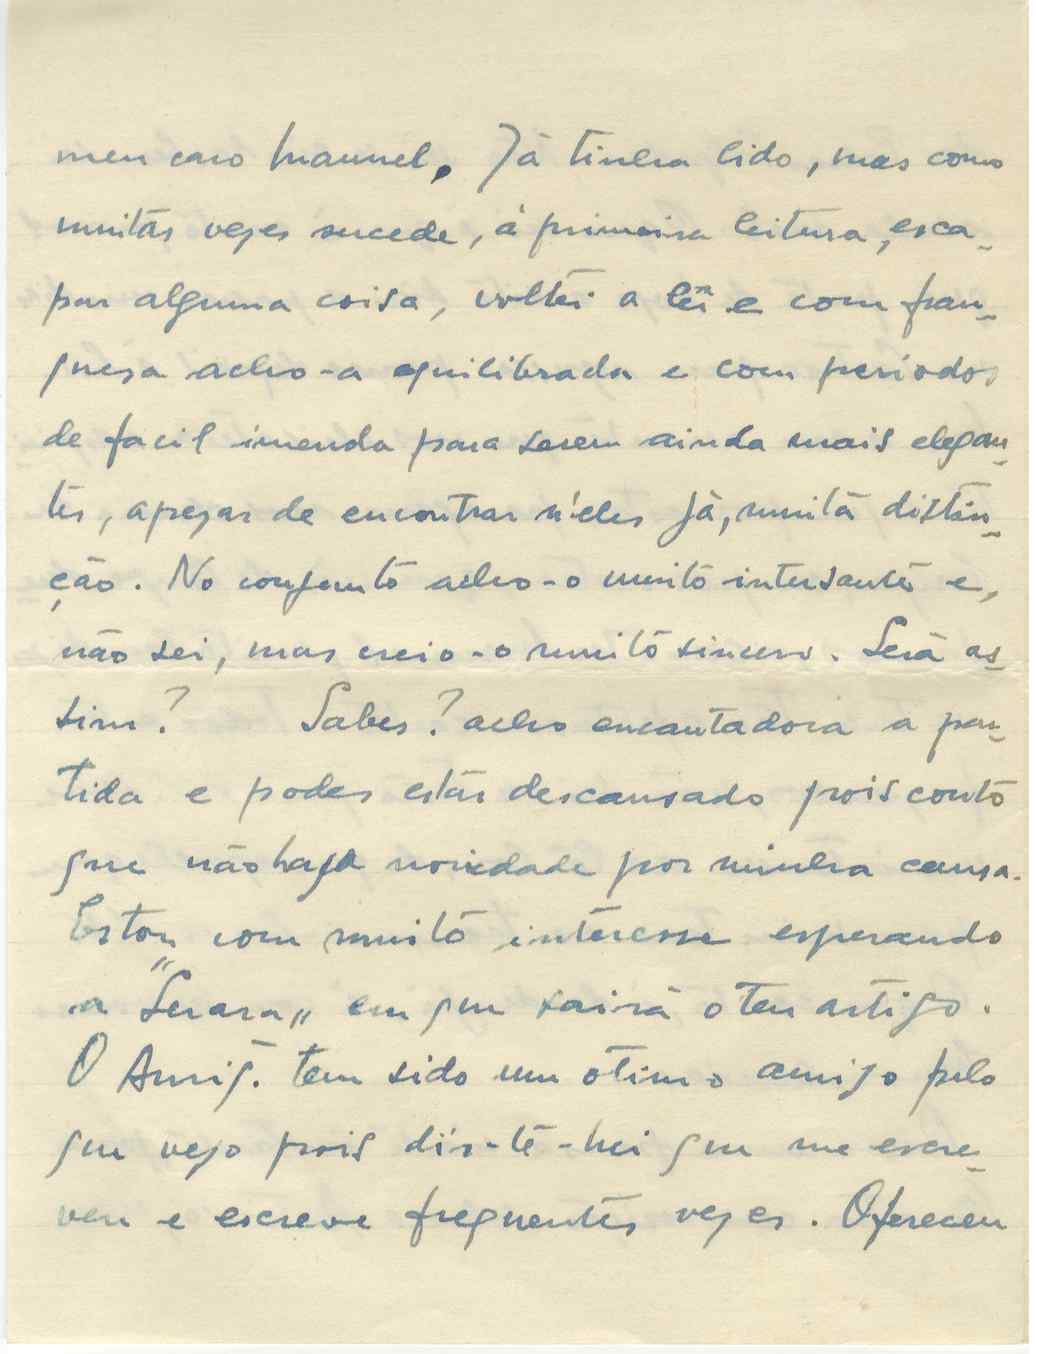 meu caro Manuel. Já tinha lido, mas como
muitas vezes sucede, á primeira leitura, esca-
par alguma coisa, voltei a lêr e com fran-
quesa acho-a equilibrada e com periodos
de facil imenda para serem ainda mais elegan-
tes, apezar de encontrar n'eles já, muita distin-
ção. No conjunto acho-o muito intersante e,
não sei, mas creio-o muito sincero. Será as-
sim? Sabes? acho encantadora a par-
tida e podes estár descansado pois conto
que não haja novidade por minha causa.
Estou com muito intéresse esperando
a "Seara„ em que sairá o teu artigo.
O Amig. tem sido um otimo amigo pelo
que vejo pois dir-te-hei que me escre-
veu e escreve frequentes vezes. Ofereceu